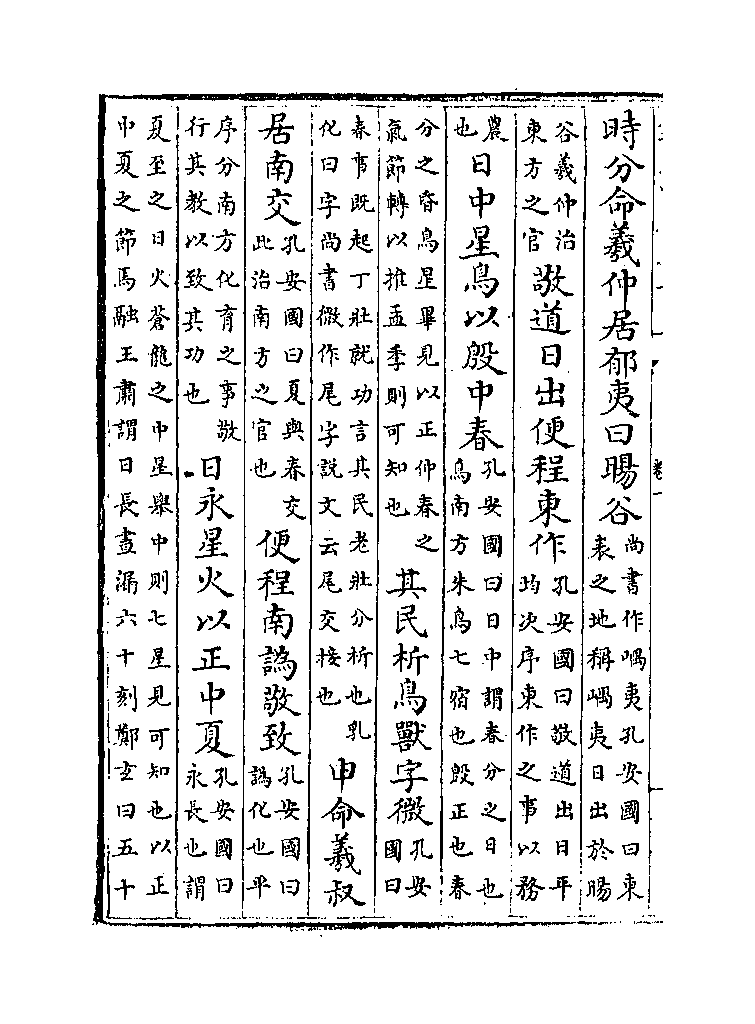 時分命羲仲居郁夷曰暘谷尚書作嵎夷孔安國曰東表之地稱嵎夷日出於暘
谷羲仲治東方之官敬道日出便程東作孔安國曰敬道出日平均次序東作之事以務
農也日中星鳥以殷中春孔安國曰日中謂春分之日也鳥南方朱鳥七宿也殷正也春
分之昏鳥星畢見以正仲春之氣節轉以推孟季則可知也其民析鳥獸字微孔安國曰
春事既起丁壯就功言其民老壯分析也乳化曰字尚書微作尾字說文云尾交接也申命羲叔
居南交孔安國曰夏與春交此治南方之官也便程南譌敬致孔安國曰譌化也平
序分南方化育之事敬行其教以致其功也日永星火以正中夏孔安國曰永長也謂
夏至之日火蒼龍之中星舉中則七星見可知也以正中夏之節馬融王肅謂日長晝漏六十刻鄭玄曰五十